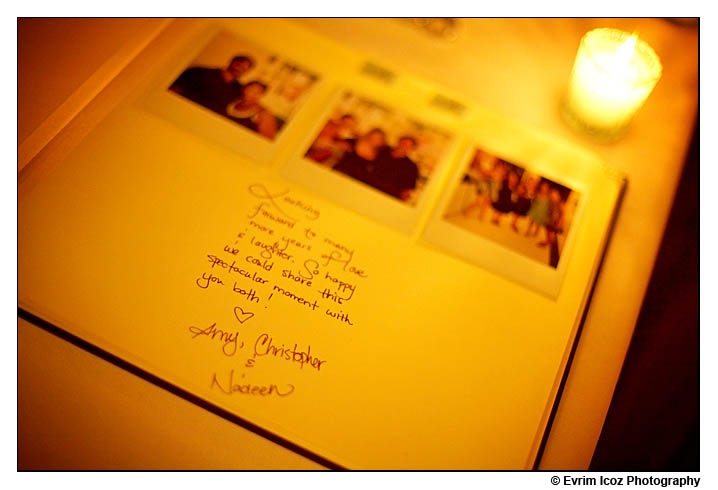 Looking
forward to many
more years of love
& laughter. So happy
we could share this
spectacular moment with
you both!
♡
Amy, Christopher
&
Nadeen
© Evrim Icoz Photography